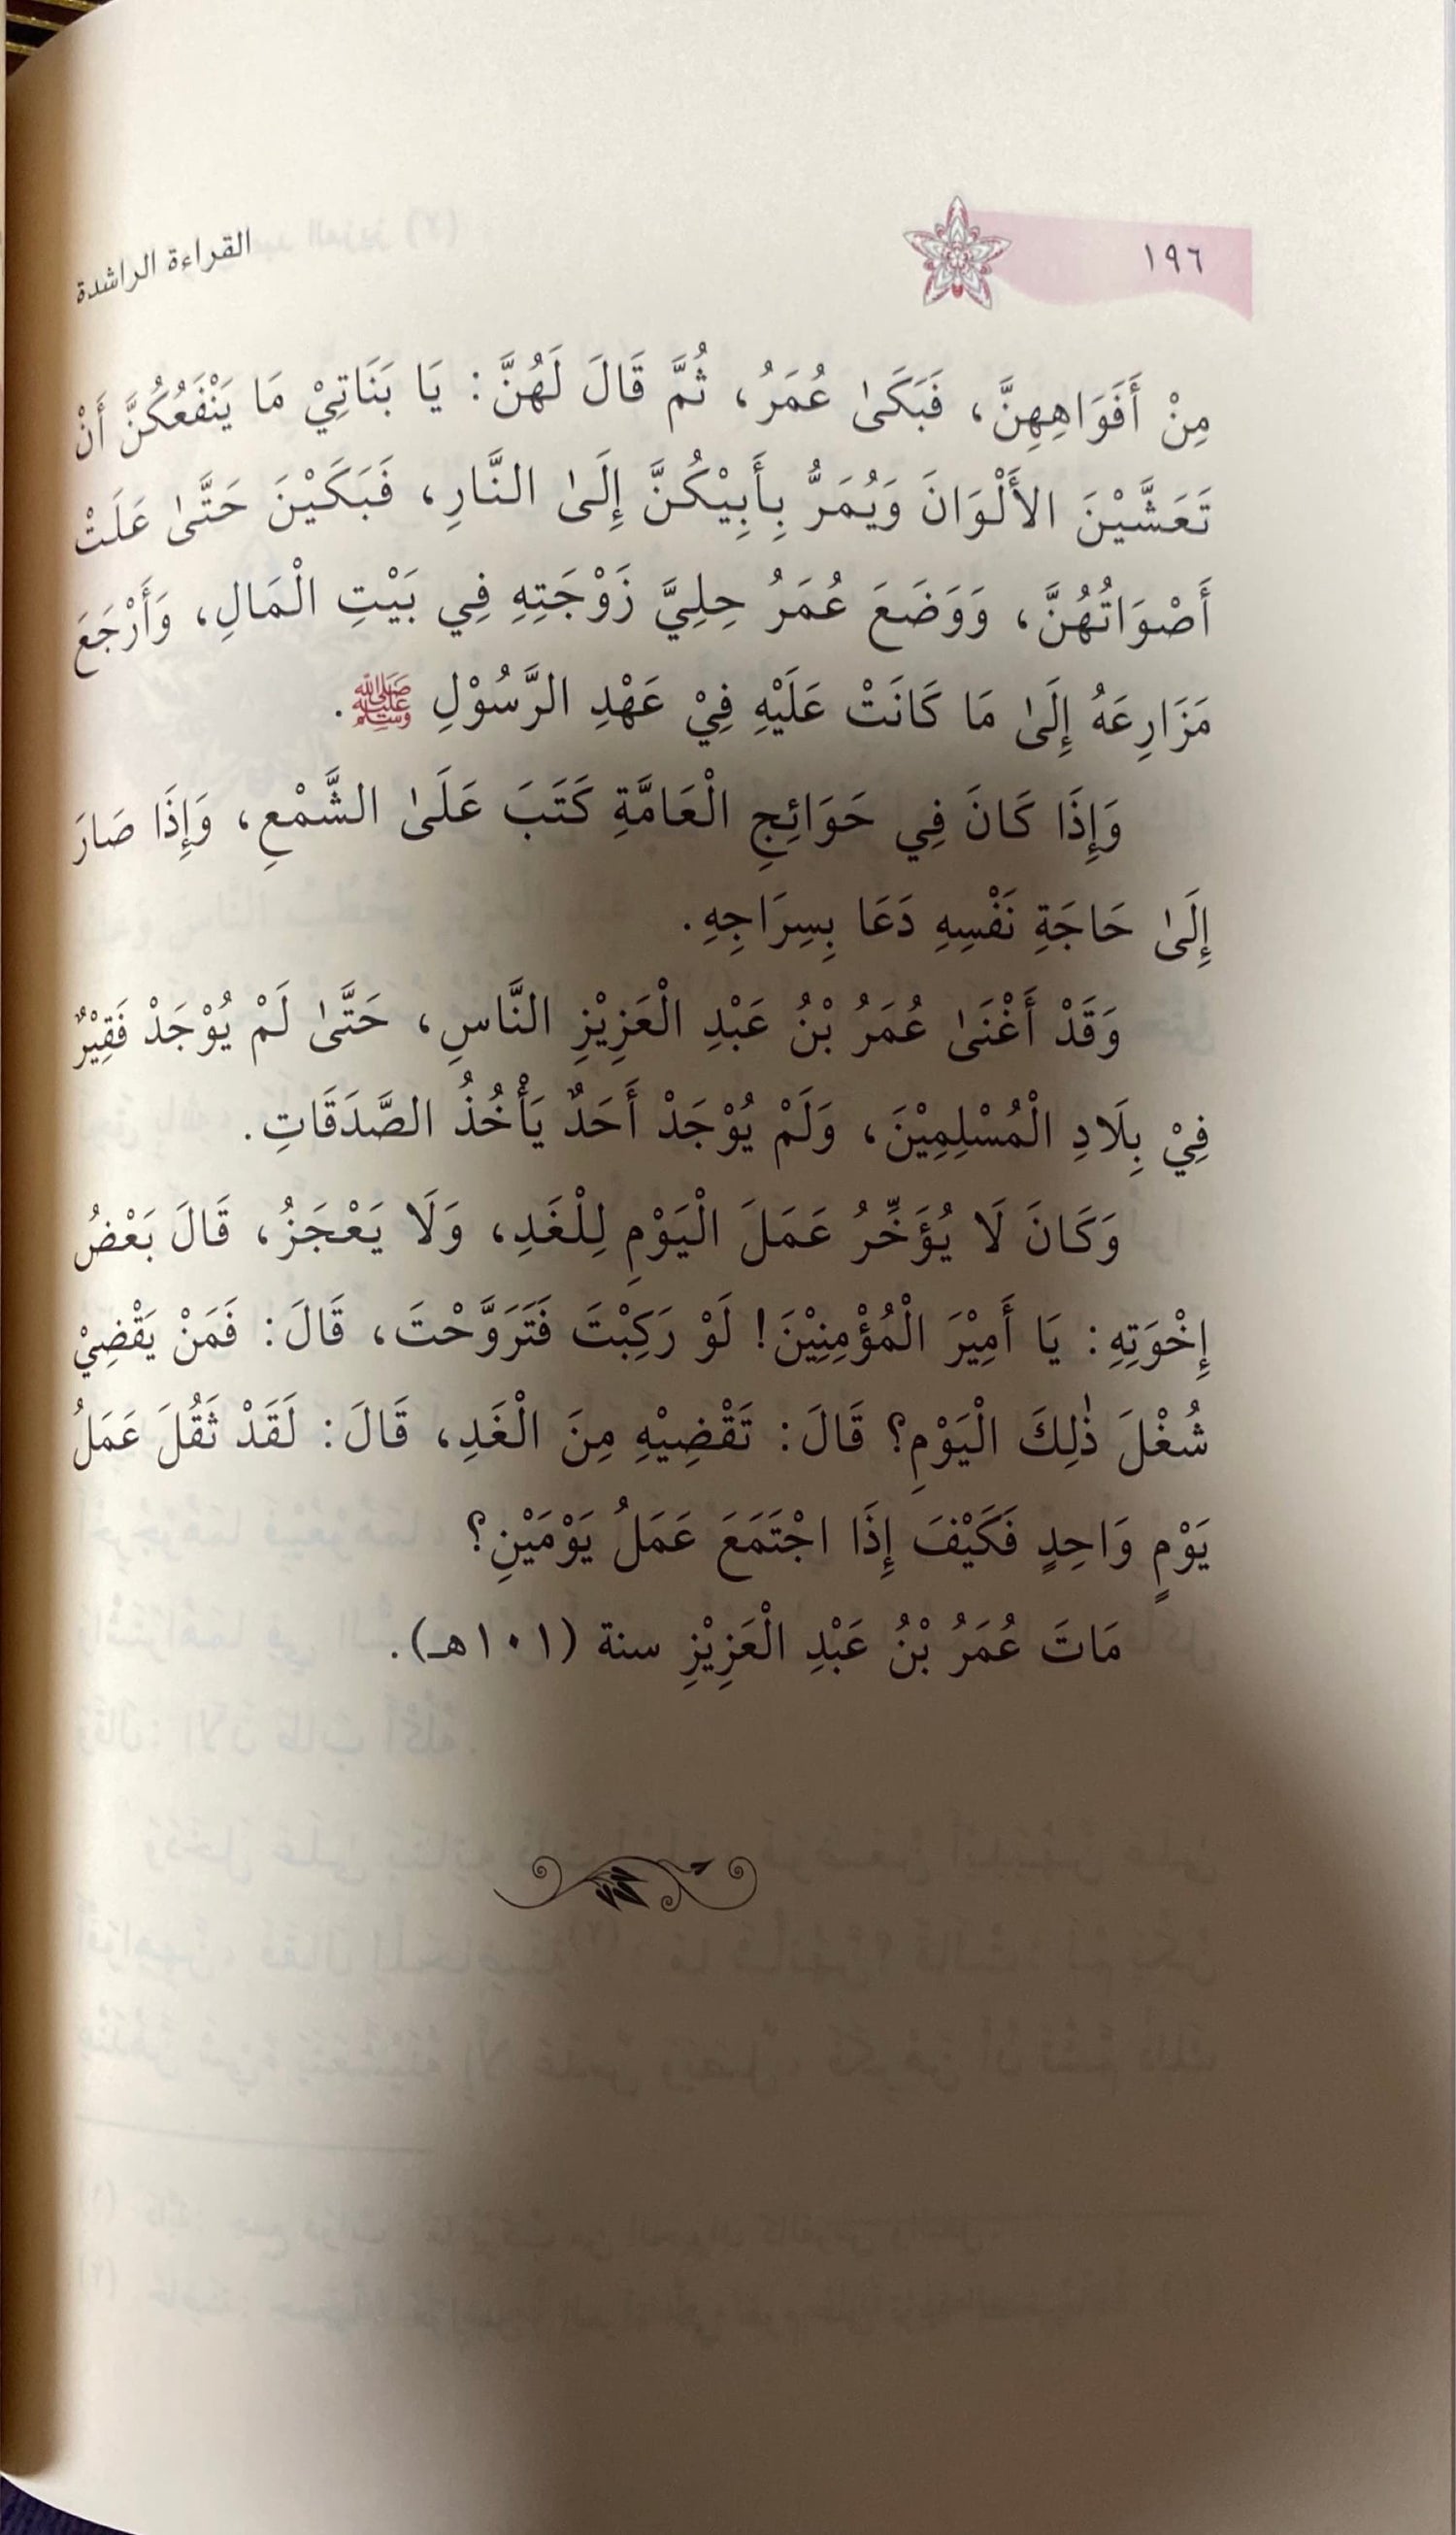 ١٩٦ القراءة الراشدة
مِنْ أَفَوَاهِهِنَّ، فَبَكَىٰ عُمَرُ، ثُمَّ قَالَ لَهُنَّ: يَا بَنَاتِيْ مَا يَنْفَعُكُنَّ أَنْ
تَعَشَّيْنَ الأَلْوَانَ وَيُمَرُّ بِأَبِيْكُنَّ إِلَىٰ النَّارِ، فَبَكَيْنَ حَتَّىٰ عَلَتْ
أَصْوَاتُهُنَّ، وَوَضَعَ عُمَرُ حِلِيَّ زَوْجَتِهِ فِي بَيْتِ الْمَالِ، وَأَرْجَعَ
مَزَارِعَهُ إِلَىٰ مَا كَانَتْ عَلَيْهِ فِيْ عَهْدِ الرَّسُوْلِ ﷺ.
وَإِذَا كَانَ فِي حَوَائِجِ الْعَامَّةِ كَتَبَ عَلَىٰ الشَّمْعِ، وَإِذَا صَارَ
إِلَىٰ حَاجَةِ نَفْسِهِ دَعَا بِسِرَاجِهِ.
وَقَدْ أَغْنَىٰ عُمَرُ بْنُ عَبْدِ الْعَزِيْزِ النَّاسِ، حَتَّىٰ لَمْ يُوْجَدْ فَقِيْرٌ
فِيْ بِلَادِ الْمُسْلِمِيْنَ، وَلَمْ يُوْجَدْ أَحَدٌ يَأْخُذُ الصَّدَقَاتِ.
وَكَانَ لَا يُؤَخِّرُ عَمَلَ الْيَوْمِ لِلْغَدِ، وَلَا يَعْجَزُ، قَالَ بَعْضُ
إِخْوَتِهِ: يَا أَمِيْرَ الْمُؤْمِنِيْنَ! لَوْ رَكِبْتَ فَتَرَوَّحْتَ، قَالَ: فَمَنْ يَقْضِيْ
شُغْلَ ذٰلِكَ الْيَوْمِ؟ قَالَ: تَقْضِيْهِ مِنَ الْغَدِ، قَالَ: لَقَدْ ثَقُلَ عَمَلُ
يَوْمٍ وَاحِدٍ فَكَيْفَ إِذَا اجْتَمَعَ عَمَلُ يَوْمَيْنِ؟
مَاتَ عُمَرُ بْنُ عَبْدِ الْعَزِيْزِ سنة (١٠١هـ).